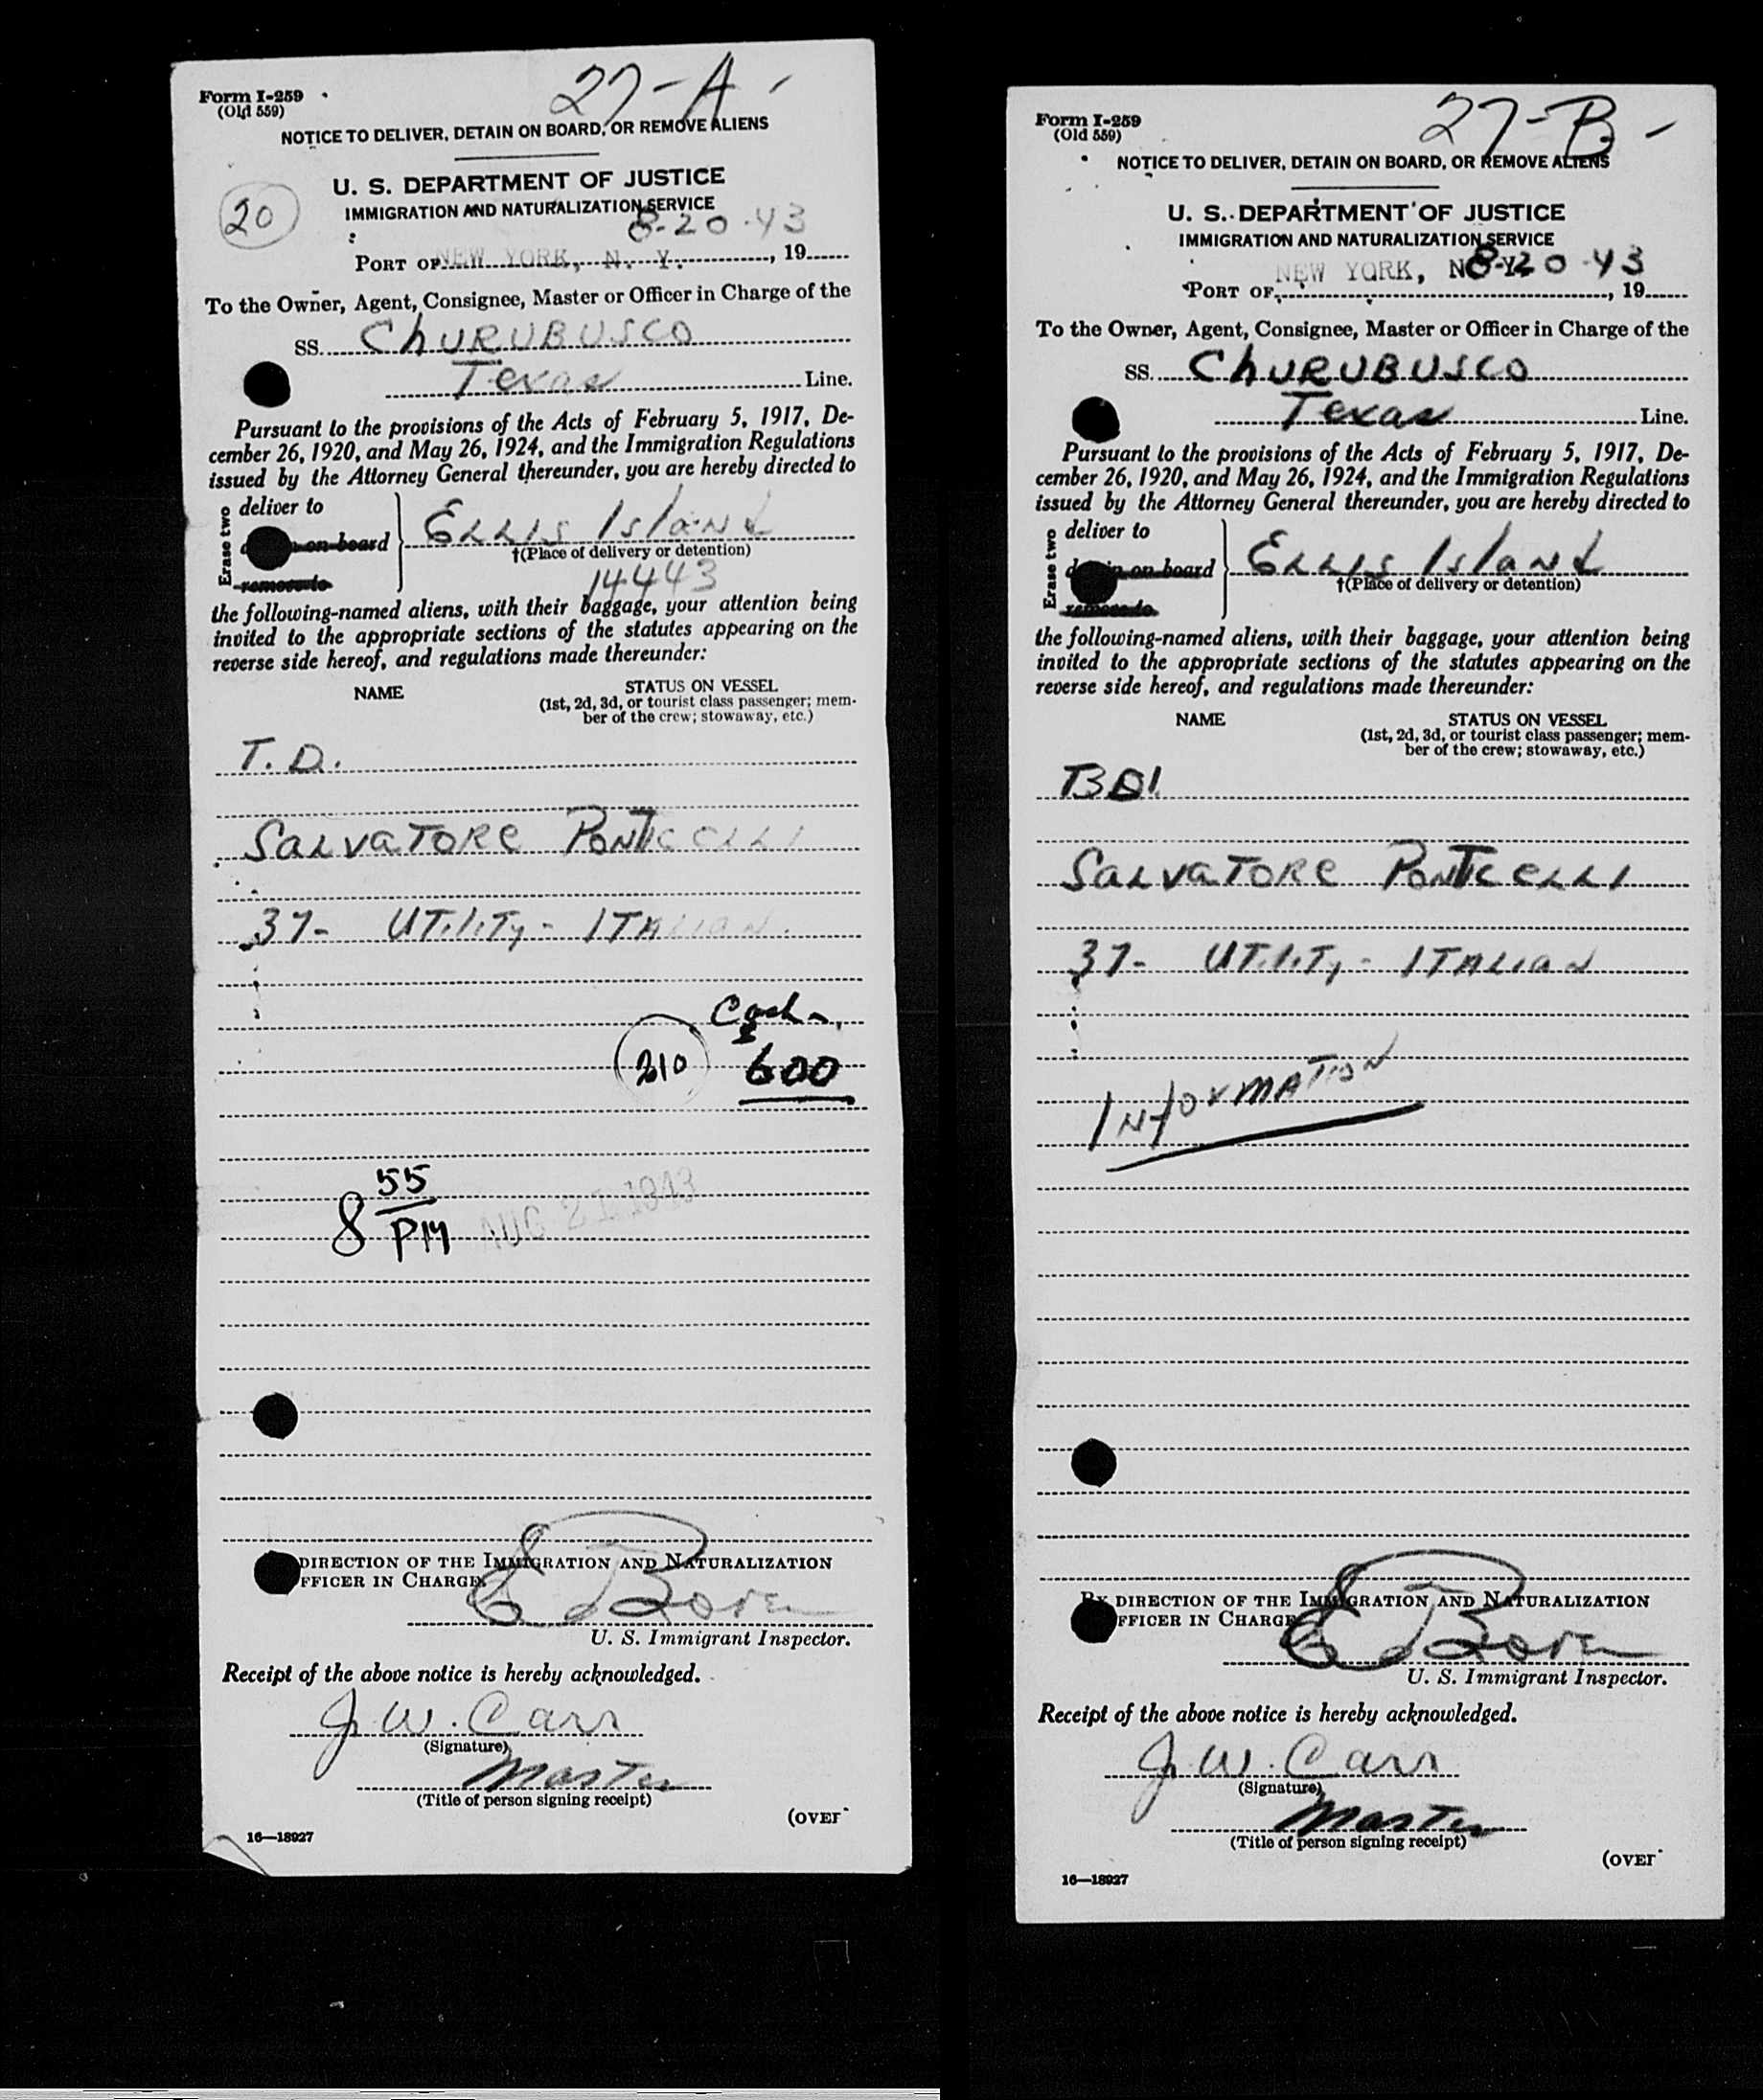 27-A-
Form I-259
(Old 559)
NOTICE TO DELIVER, DETAIN ON BOARD, OR REMOVE ALIENS
U. S. DEPARTMENT OF JUSTICE
IMMIGRATION AND NATURALIZATION SERVICE
20
8-20-43
PORT OF NEW YORK, N. Y. , 19
To the Owner, Agent, Consignee, Master or Officer in Charge of the
SS. ChURUBUSCO
Texas Line.
Pursuant to the provisions of the Acts of February 5, 1917, De-
cember 26, 1920, and May 26, 1924, and the Immigration Regulations
issued by the Attorney General thereunder, you are hereby directed to
Erase two
deliver to
on board
remove to
ELLIS IsLaNd
†(Place of delivery or detention)
14443
the following-named aliens, with their baggage, your attention being
invited to the appropriate sections of the statutes appearing on the
reverse side hereof, and regulations made thereunder:
NAME
STATUS ON VESSEL
(1st, 2d, 3d, or tourist class passenger; mem-
ber of the crew; stowaway, etc.)
T. D.
SALVATORE PONTICELLI
37- UTiliTy - ITALIAN.
Cash
210 $ 600
8 55 PM
AUG 21 1943
DIRECTION OF THE IMMIGRATION AND NATURALIZATION
FFICER IN CHARGE.
U. S. Immigrant Inspector.
Receipt of the above notice is hereby acknowledged.
J. W. Carr
(Signature)
Master
(Title of person signing receipt)
(OVER
16—18927
27-B-
Form I-259
(Old 559)
NOTICE TO DELIVER, DETAIN ON BOARD, OR REMOVE ALIENS
U. S. DEPARTMENT OF JUSTICE
IMMIGRATION AND NATURALIZATION SERVICE
8-20-43
PORT OF NEW YORK, N. Y. , 19
To the Owner, Agent, Consignee, Master or Officer in Charge of the
SS. ChURUBUSCO
Texas Line.
Pursuant to the provisions of the Acts of February 5, 1917, De-
cember 26, 1920, and May 26, 1924, and the Immigration Regulations
issued by the Attorney General thereunder, you are hereby directed to
Erase two
deliver to
on board
remove to
ELLIS IsLaNd
†(Place of delivery or detention)
the following-named aliens, with their baggage, your attention being
invited to the appropriate sections of the statutes appearing on the
reverse side hereof, and regulations made thereunder:
NAME
STATUS ON VESSEL
(1st, 2d, 3d, or tourist class passenger; mem-
ber of the crew; stowaway, etc.)
SALVATORE PONTICELLI
37- UTiliTy - ITALIAN
INfORMATION
BY DIRECTION OF THE IMMIGRATION AND NATURALIZATION
FFICER IN CHARGE
U. S. Immigrant Inspector.
Receipt of the above notice is hereby acknowledged.
J. W. Carr
(Signature)
Master
(Title of person signing receipt)
(OVER
16—18927